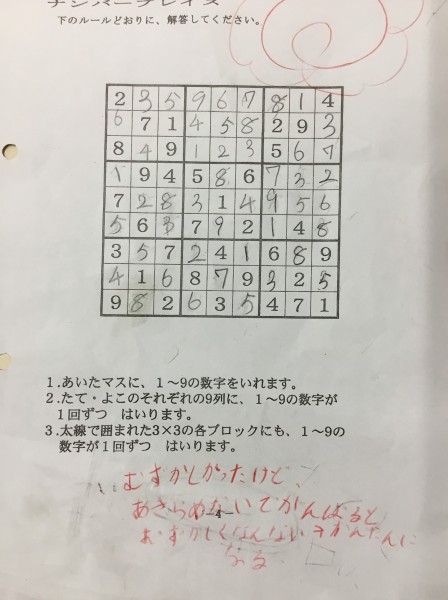 ナンバープレイス
下のルールどおりに、解答してください。
2 3 5 9 6 7 8 1 4
6 7 1 4 5 8 2 9 3
8 4 9 1 2 3 5 6 7
1 9 4 5 8 6 7 3 2
7 2 8 3 1 4 9 5 6
5 6 3 7 9 2 1 4 8
3 5 7 2 4 1 6 8 9
4 1 6 8 7 9 3 2 5
9 8 2 6 3 5 4 7 1
1.あいたマスに、1～9の数字をいれます。
2.たて・よこのそれぞれの9列に、1～9の数字が
1回ずつ　はいります。
3.太線で囲まれた3×3の各ブロックにも、1～9の
数字が1回ずつ　はいります。
むずかしかったけど、
あきらめないでがんばると
−4−
むずかしくなんない かんたんに
なる